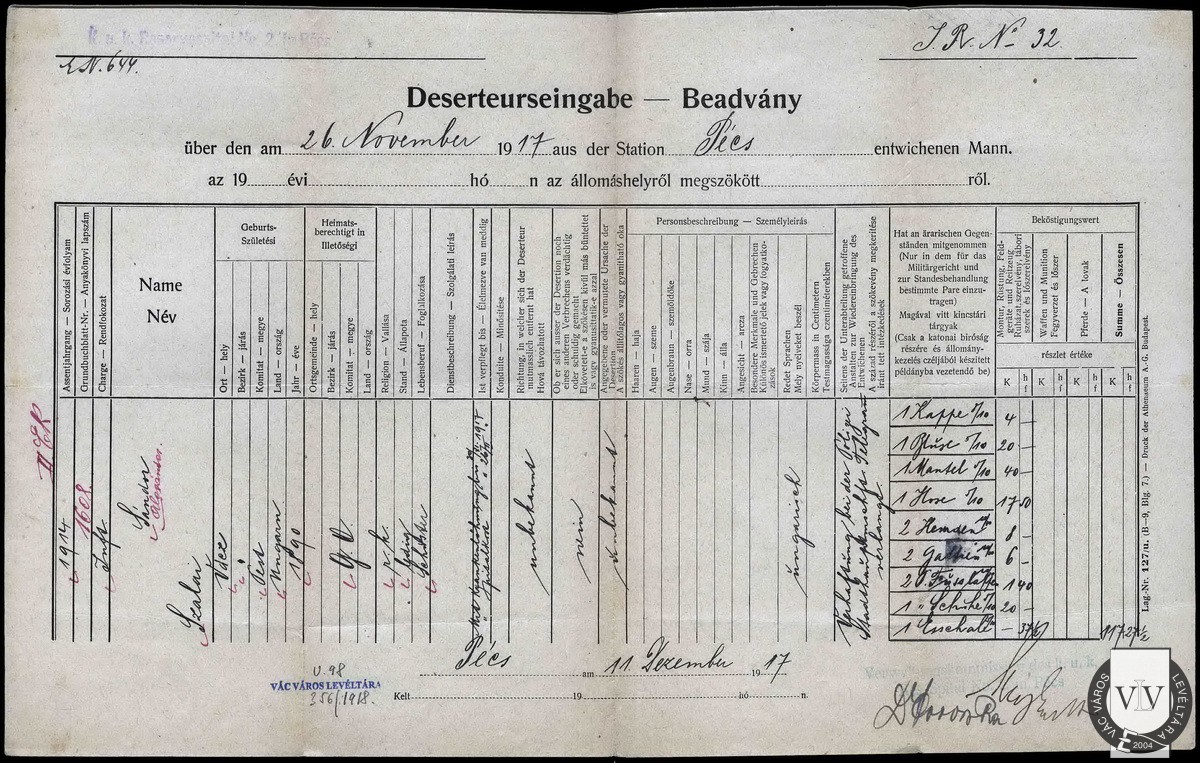 k. u. k. Reservespital Nr. 2 in Pécs
I. R. Nº 32.
E. N. 644.
Deserteurseingabe — Beadvány
über den am 26. November 1917 aus der Station Pécs entwichenen Mann.
az 19 évi hó n az állomáshelyről megszökött ről.
Assentjahrgang — Sorozási évfolyam
Grundbuchblatt-Nr. — Anyakönyvi lapszám
Charge — Rendfokozat
Name
Név
Geburts-
Születési
Ort — hely
Bezirk — járás
Komitat — megye
Land — ország
Jahr — éve
Heimats-
berechtigt in
Illetőségi
Ortsgemeinde — hely
Bezirk — járás
Komitat — megye
Land — ország
Religion — Vallása
Stand — Állapota
Lebensberuf — Foglalkozása
Dienstbeschreibung — Szolgálati leírás
Ist verpflegt bis — Élelmezve van meddig
Konduite — Minősítése
Richtung, in welcher sich der Deserteur
mutmasslich entfernt hat
Hová távozhatott
Ob er sich ausser der Desertion noch
eines anderen Verbrechens verdächtig
oder schuldig gemacht
Elkövetett-e a szökésen kívül más bűntettet
is vagy gyanusíttatik-e azzal
Angegebene oder vermutete Ursache der
Desertion
A szökés állítólagos vagy gyanítható oka
Personsbeschreibung — Személyleírás
Haaren — haja
Augen — szeme
Augenbraun — szemöldöke
Nase — orra
Mund — szája
Kinn — álla
Angesicht — arcza
Besondere Merkmale und Gebrechen
Különös ismertető jelek vagy fogyatkozások
Redet Sprachen
Mely nyelveket beszél
Körpermass in Centimetern
Testmagassága czentiméterekben
Seitens der Unterabteilung getroffene
Anstalten zur Wiedereinbringung des
Entwichenen
A század részéről a szökevény megkerítése
iránt tett intézkedések
Hat an ärarischen Gegen-
ständen mitgenommen
(Nur in dem für das
Militärgericht und
zur Standesbehandlung
bestimmte Pare einzu-
tragen)
Magával vitt kincstári
tárgyak
(Csak a katonai biróság
részére és állomány-
kezelés czéljából készített
példányba vezetendő be)
Beköstigungswert
Montur, Rüstung, Feld-
geräte und Reitzeug
Ruházat, szerelvény, tábori
szerek és lószerelvény
Waffen und Munition
Fegyverzet és lőszer
Pferde — A lovak
Summe — Összesen
részlet értéke
K h f K h f K h f K h f
1914
1608
Inft.
Szalai Sándor
Alexander
Vácz
Pest
Ungarn
1890
G. O.
r. k.
ledig
Schuster
unbekannt
nein
unbekannt
ungarisch
Verhaftung bei der Polizei
verlangt
1 Kappe 7/10 4 —
1 Bluse 7/10 20 —
1 Mantel 7/10 40 —
1 Hose 7/10 17 50
2 Hemden 8 —
2 Gattien 6 —
2 P. Fusslappen 1 40
1 " Schuhe 7/10 20 —
1 Esschale
117 27½
Pécs am 11. Dezember 1917
Kelt 19 hó n.
U. 98
VÁC VÁROS LEVÉLTÁRA
356/1918.
Lag.-Nr. 127/u. (B—9, Blg. 7.) — Druck der Athenaeum A.-G. Budapest.
VÁC VÁROS LEVÉLTÁRA
VLV
2004